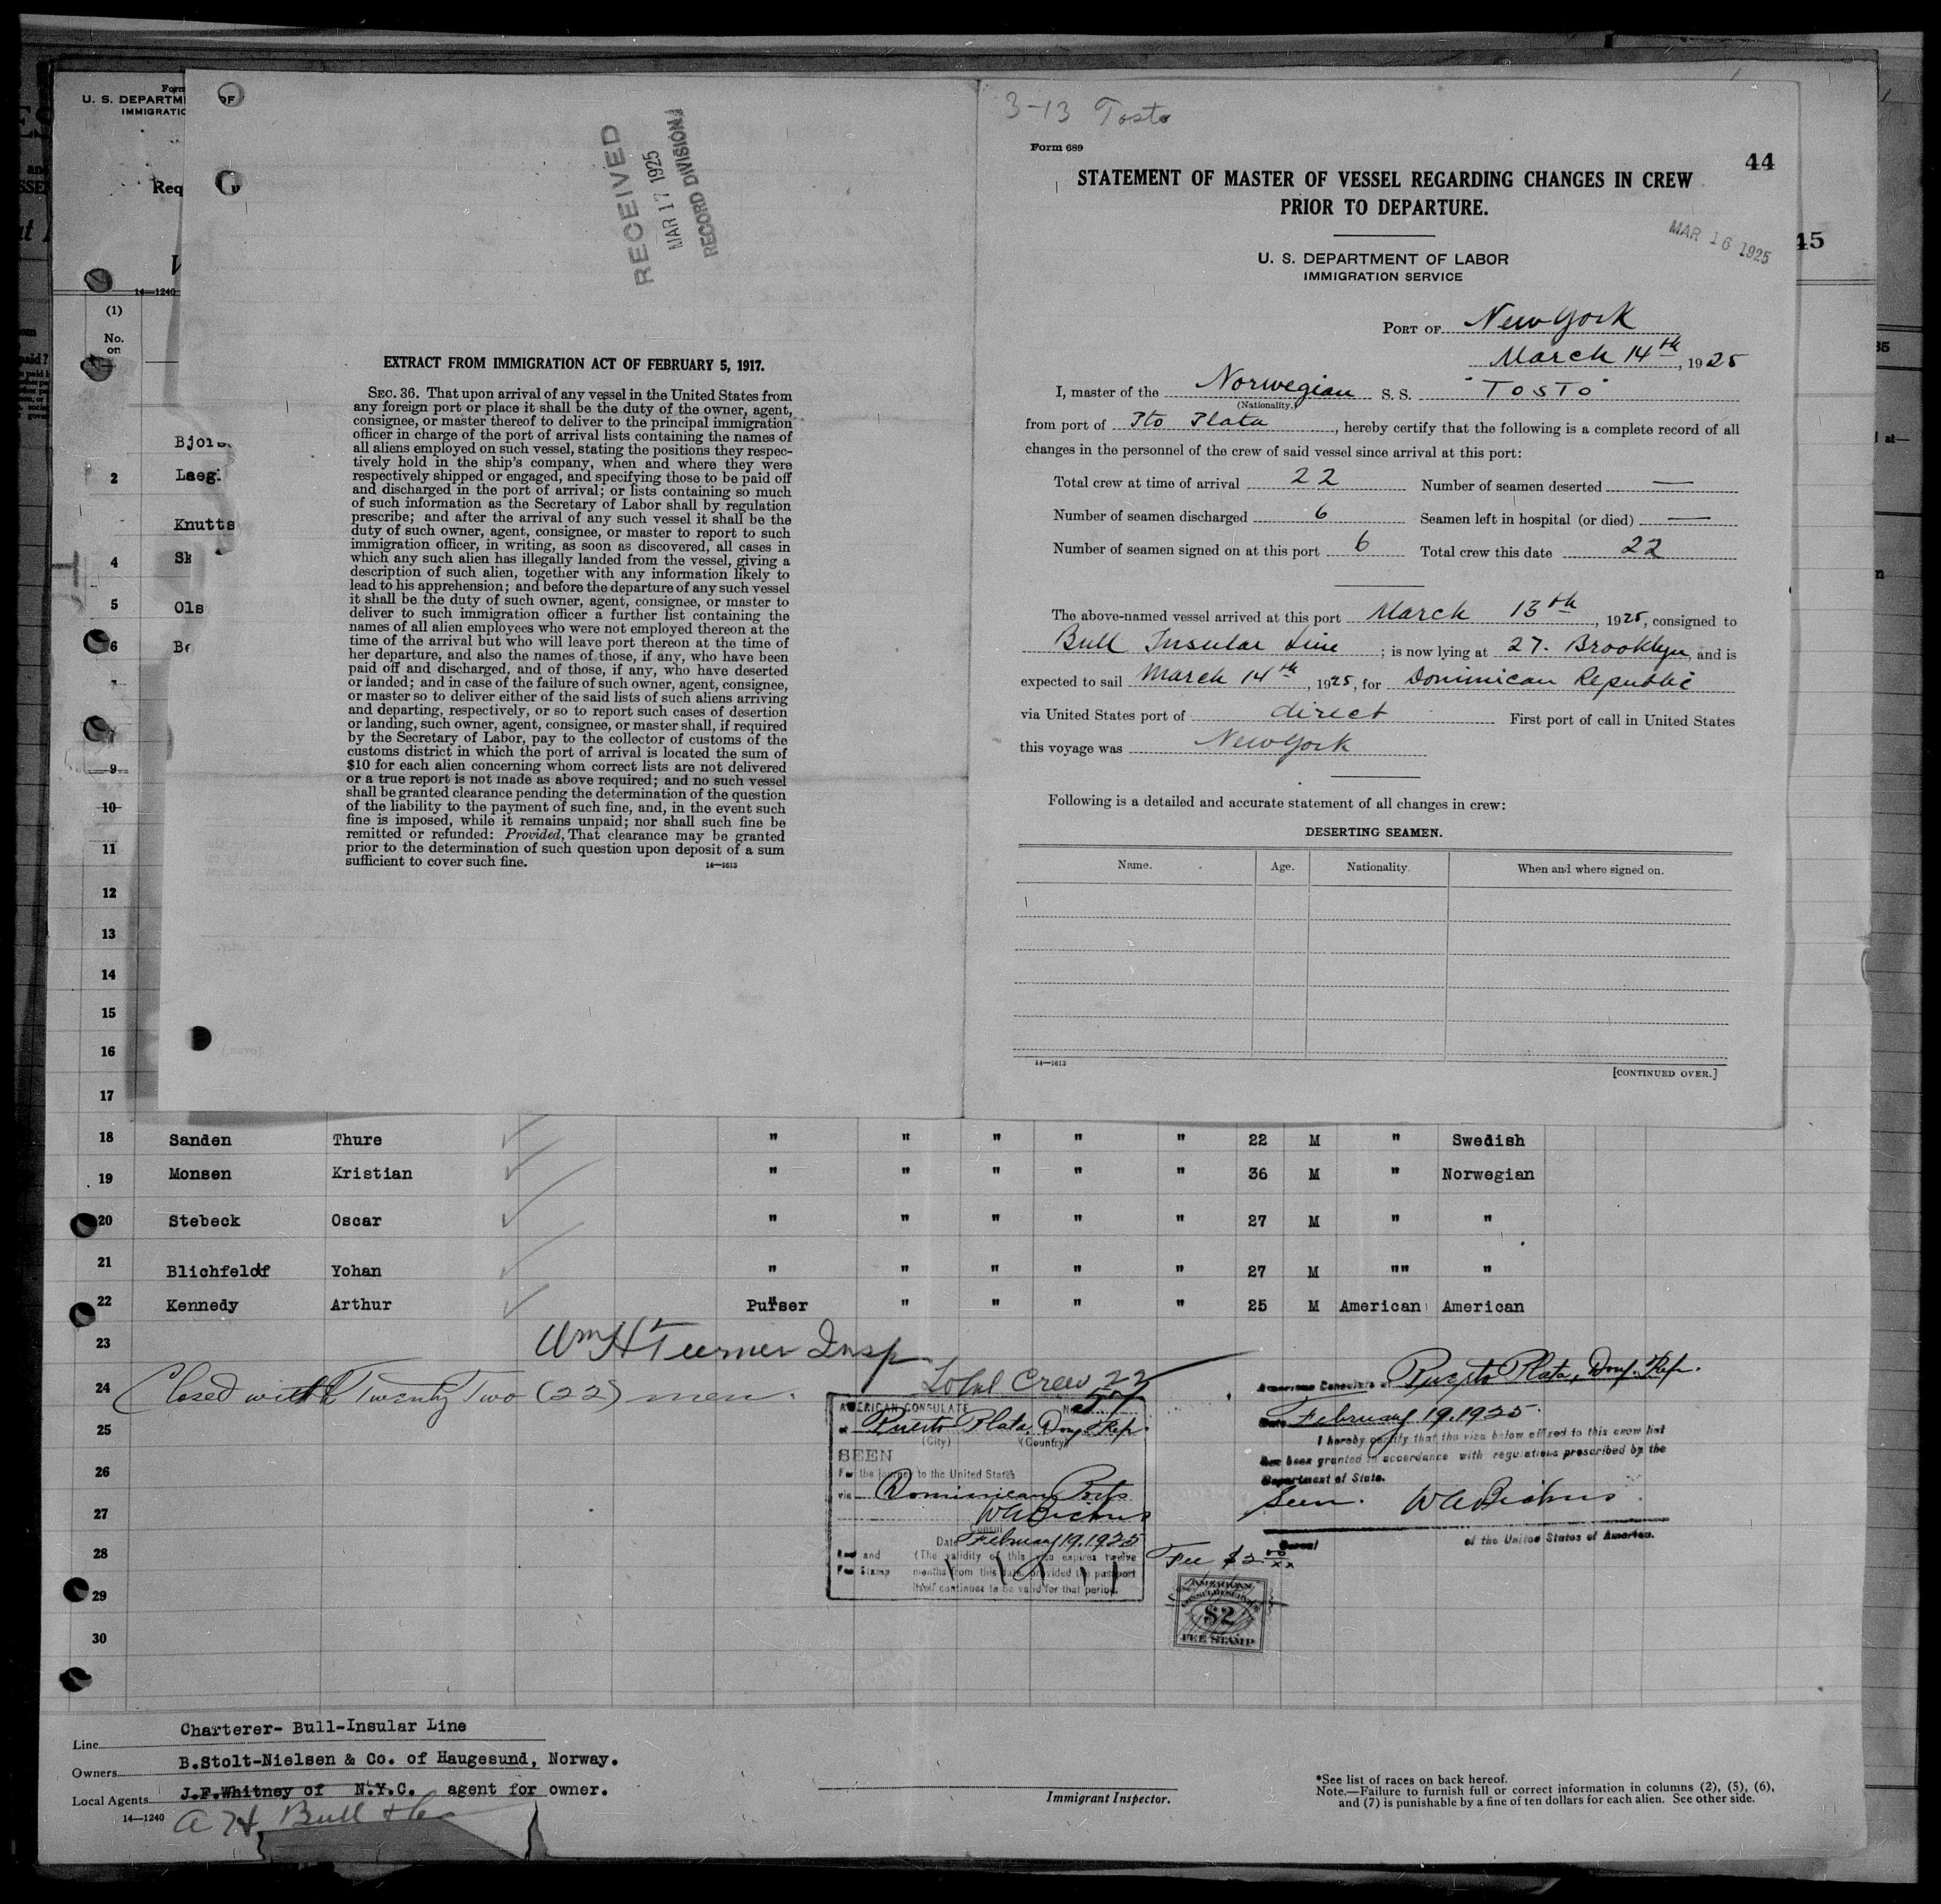 Form
U. S. DEPARTM OF
IMMIGRATIO
Req
14—1240
(1)
No.
on
Bjols
2 Laegi
Knutts
4 Sk
5 Ols
6 Be
7
9
10
11
12
13
14
15
16
17
RECEIVED
MAR 17 1925
RECORD DIVISION
EXTRACT FROM IMMIGRATION ACT OF FEBRUARY 5, 1917.
SEC. 36. That upon arrival of any vessel in the United States from
any foreign port or place it shall be the duty of the owner, agent,
consignee, or master thereof to deliver to the principal immigration
officer in charge of the port of arrival lists containing the names of
all aliens employed on such vessel, stating the positions they respec-
tively hold in the ship's company, when and where they were
respectively shipped or engaged, and specifying those to be paid off
and discharged in the port of arrival; or lists containing so much
of such information as the Secretary of Labor shall by regulation
prescribe; and after the arrival of any such vessel it shall be the
duty of such owner, agent, consignee, or master to report to such
immigration officer, in writing, as soon as discovered, all cases in
which any such alien has illegally landed from the vessel, giving a
description of such alien, together with any information likely to
lead to his apprehension; and before the departure of any such vessel
it shall be the duty of such owner, agent, consignee, or master to
deliver to such immigration officer a further list containing the
names of all alien employees who were not employed thereon at the
time of the arrival but who will leave port thereon at the time of
her departure, and also the names of those, if any, who have been
paid off and discharged, and of those, if any, who have deserted
or landed; and in case of the failure of such owner, agent, consignee,
or master so to deliver either of the said lists of such aliens arriving
and departing, respectively, or so to report such cases of desertion
or landing, such owner, agent, consignee, or master shall, if required
by the Secretary of Labor, pay to the collector of customs of the
customs district in which the port of arrival is located the sum of
$10 for each alien concerning whom correct lists are not delivered
or a true report is not made as above required; and no such vessel
shall be granted clearance pending the determination of the question
of the liability to the payment of such fine, and, in the event such
fine is imposed, while it remains unpaid; nor shall such fine be
remitted or refunded: Provided, That clearance may be granted
prior to the determination of such question upon deposit of a sum
sufficient to cover such fine. 14—1613
3-13 Tosto
Form 689
44
STATEMENT OF MASTER OF VESSEL REGARDING CHANGES IN CREW
PRIOR TO DEPARTURE.
MAR 16 1925
45
U. S. DEPARTMENT OF LABOR
IMMIGRATION SERVICE
PORT OF New York
March 14th, 1925
I, master of the Norwegian S. S. "TOSTO"
(Nationality.)
from port of Pto Plata, hereby certify that the following is a complete record of all
changes in the personnel of the crew of said vessel since arrival at this port:
Total crew at time of arrival 22 Number of seamen deserted —
Number of seamen discharged 6 Seamen left in hospital (or died) —
Number of seamen signed on at this port 6 Total crew this date 22
The above-named vessel arrived at this port March 13th, 1925, consigned to
Bull Insular Line; is now lying at 27. Brooklyn, and is
expected to sail March 14th, 1925, for Dominican Republic
via United States port of direct First port of call in United States
this voyage was New York
Following is a detailed and accurate statement of all changes in crew:
DESERTING SEAMEN.
Name. Age. Nationality. When and where signed on.
14—1613
[CONTINUED OVER.]
18 Sanden Thure " " " " " 22 M " Swedish
19 Monsen Kristian " " " " " 36 M " Norwegian
20 Stebeck Oscar " " " " " 27 M " "
21 Blichfeldt Yohan " " " " " 27 M "" "
22 Kennedy Arthur Purser " " " " 25 M American American
23 Wm H Turner Insp
24 Closed with Twenty Two (22) men.
Total Crew 22
25
26
27
28
29
30
AMERICAN CONSULATE No. 57
at Puerto Plata, Dom. Rep.
(City) (Country)
SEEN
For the journey to the United States
via Dominican Ports
W A Bickers
Consul
Date February 19, 1925
(The validity of this visa expires twelve
months from this date, provided the passport
itself continues to be valid for that period.
Seal and
Fee Stamp
American Consulate at Puerto Plata, Dom. Rep.
Date February 19, 1925.
I hereby certify that the visa below affixed to this crew list
has been granted in accordance with regulations prescribed by the
Department of State.
Seen. W A Bickers
Consul of the United States of America.
Fee $2 00/xx
AMERICAN
CONSULAR SERVICE
$2
FEE STAMP
Line Charterer- Bull-Insular Line
Owners B.Stolt-Nielsen & Co. of Haugesund, Norway.
Local Agents J.F.Whitney of N.Y.C. agent for owner.
14—1240 A H Bull & Co
Immigrant Inspector.
*See list of races on back hereof.
Note.—Failure to furnish full or correct information in columns (2), (5), (6),
and (7) is punishable by a fine of ten dollars for each alien. See other side.